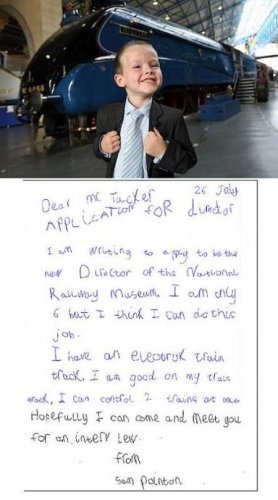 Dear mr Tucker 26 July
APPLICATION FOR director
I am writing to apply to be the
new Director of the National
Railway Museum. I am only
6 but I think I can do this
job.
I have an electrick train
track. I am good on my train
track. I can control 2 trains at once
Hopefully I can come and meet you
for an interview.
from
Sam pointon